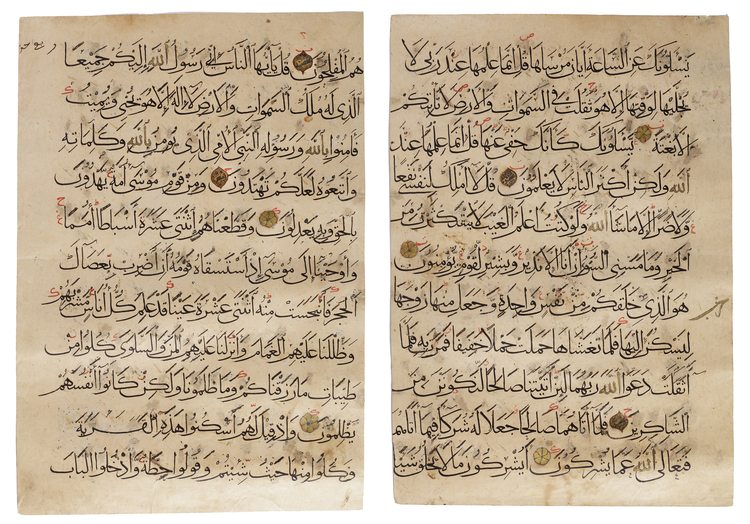 يسئلونك عن الساعة ايان مرساها قل انما علمها عند ربي لا
يجليها لوقتها الا هو ثقلت في السموات والارض لا تأتيكم
الا بغتة يسئلونك كأنك حفي عنها قل انما علمها عند
الله ولكن اكثر الناس لا يعلمون قل لا املك لنفسي نفعا
ولا ضرا الا ما شا الله ولو كنت اعلم الغيب لاستكثرت من
الخير وما مسني السوء ان انا الا نذير وبشير لقوم يؤمنون
هو الذي خلقكم من نفس واحدة وجعل منها زوجها
ليسكن اليها فلما تغشاها حملت حملا خفيفا فمرت به فلما
اثقلت دعوا الله ربهما لئن اتيتنا صالحا لنكونن من
الشاكرين فلما اتاهما صالحا جعلا له شركا فيما اتاهما
فتعالى الله عما يشركون ايشركون ما لا يخلق شيئا
هم المفلحون قل يا ايها الناس اني رسول الله اليكم جميعا
الذي له ملك السموات والارض لا اله الا هو يحيي ويميت
فامنوا بالله ورسوله النبي الامي الذي يؤمن بالله وكلماته
واتبعوه لعلكم تهتدون ومن قوم موسى امة يهدون
بالحق وبه يعدلون وقطعناهم اثنتي عشرة اسباطا امما
واوحينا الى موسى اذ استسقاه قومه ان اضرب بعصاك
الحجر فانبجست منه اثنتي عشرة عينا قد علم كل اناس مشربهم
وظللنا عليهم الغمام وانزلنا عليهم المن والسلوى كلوا من
طيبات ما رزقناكم وما ظلمونا ولكن كانوا انفسهم
يظلمون واذ قيل لهم اسكنوا هذه القرية
وكلوا منها حيث شئتم وقولوا حطة وادخلوا الباب